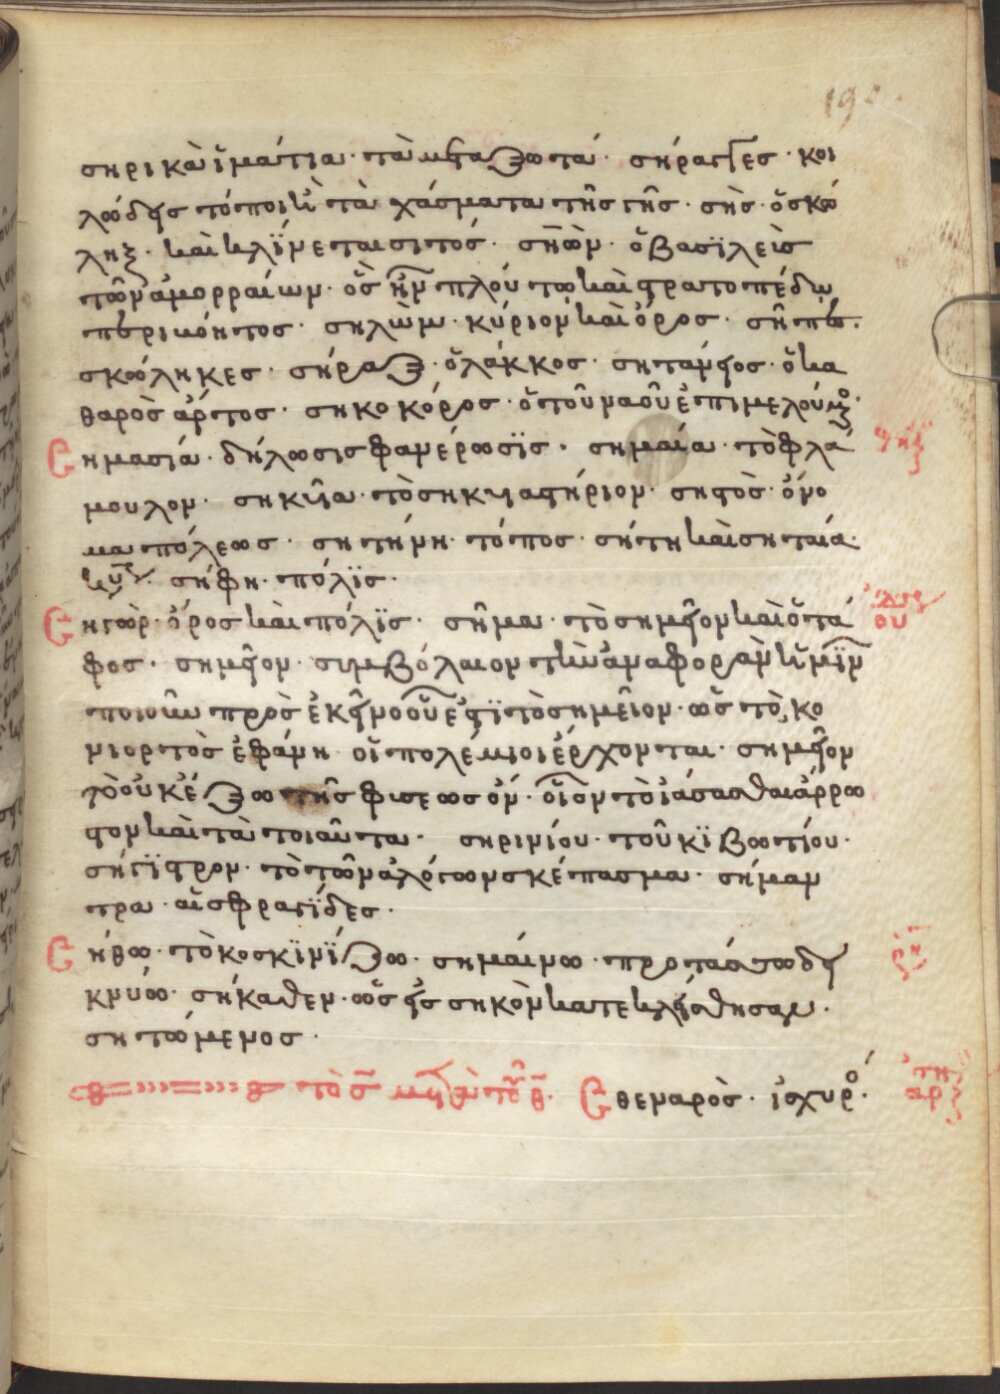 σηρικὰ ἱμάτια· τὰ μεταξωτά· σήραγγες· κοι
λώδεις τόποι ἢ τὰ χάσματα τῆς γῆς· σής· ὁ σκώ
ληξ· καὶ κλίνεται σητός· σηών· ὁ βασιλεὺς
τῶν ἀμορραίων· ὃς ἦν πλούτω καὶ στρατοπέδω
περικόητος· σηλώμ· κύριον καὶ ὄρος· σῆπες·
σκώληκες· σήραξ· ὁ λάκκος· σητάνιος· ὁ κα
θαρὸς ἄρτος· σηκοκόρος· ὁ τοῦ ναοῦ ἐπιμελούμενος·
Σημασία· δήλωσις φανέρωσις· σημαία· τὸ φλά
μουλον· σηκεία· τὸ σηκιαστήριον· σηστός· ὄνο
μα πόλεως· σητήνη· τόπος· σήτη καὶ σηταία·
κύριον· σήφη· πόλις·
Σηγώρ· ὄρος καὶ πόλις· σῆμα· τὸ σημεῖον καὶ ὁ τά
φος· σημεῖον· συμβόλαιον τὴν ἀναφορὰν ἡμῖν
ποιοῦν πρὸς ἐκεῖνο οὗ ἐστὶ τὸ σημεῖον· ὡς τὸ, κο
νιορτὸς ἐφάνη οἱ πολέμιοι ἔρχονται· σημεῖον
τὸ οὐκ ἔξω τῆς φύσεως ὄν· οἷον τὸ ἰάσασθαι ἄρρω
στον καὶ τὰ τοιαῦτα· σηρινίου· τοῦ κιβωτίου·
σήγιστρον· τὸ τῶν ἀλόγων σκέπασμα· σήμαν
τρα· αἱ σφραγῖδες·
Σήθω· τὸ κοσκινίζω· σημαίνω· προτάσσω δει
κνύω· σήκαθεν· ὡς εἰς σηκὸν κατεκλείσθησαν·
σητώμενος·
τὸ σ̄ μετὰ τοῦ θ̄· Σθεναρός· ἰσχυρός·